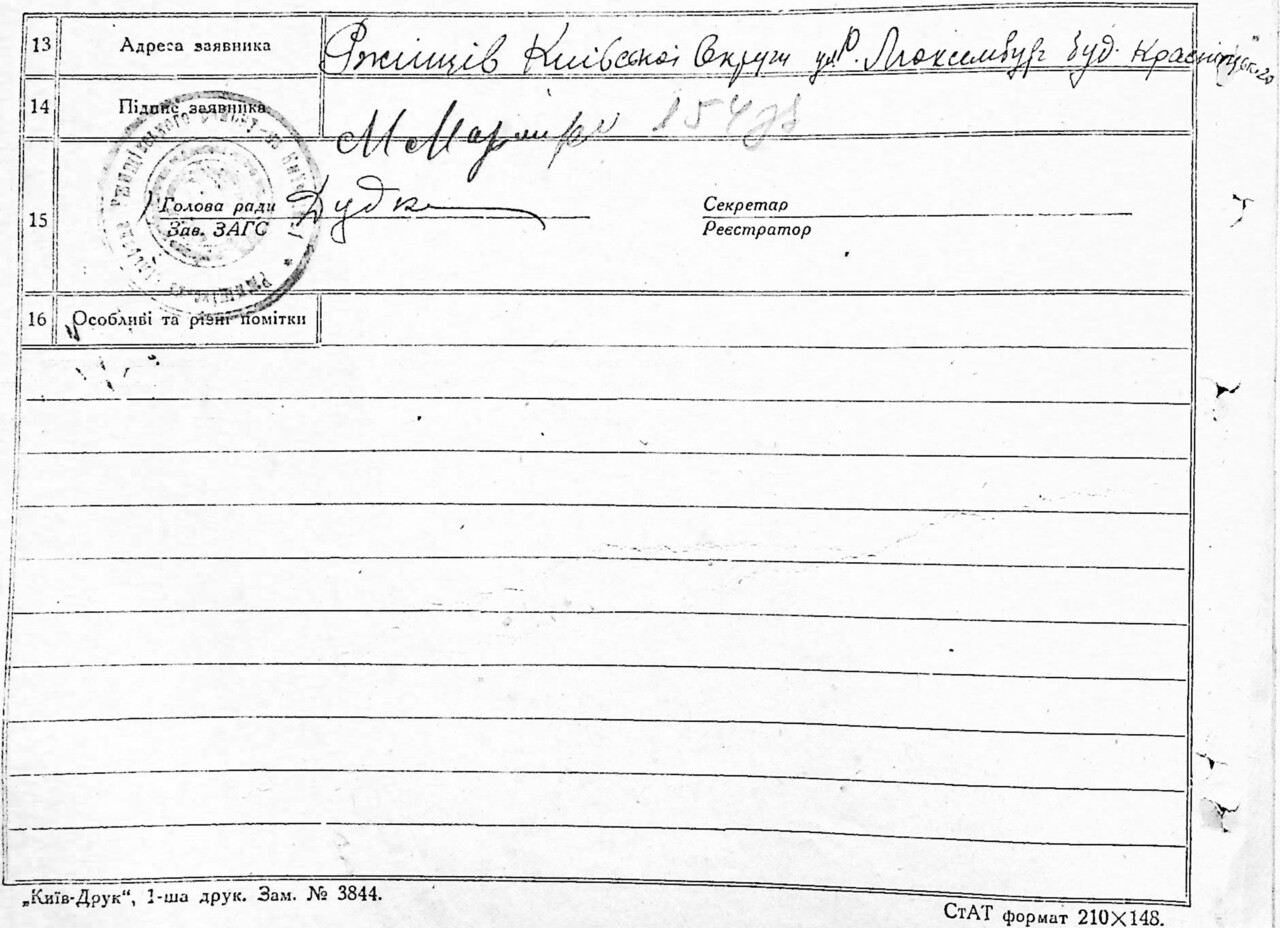 13 Адреса заявника Ржищів Київської Округи ул. Р. Люксембург буд. Красницького
14 Підпис заявника
15 Голова ради Дудка Секретар
Зав. ЗАГС Реєстратор
16 Особливі та різні помітки
„Київ-Друк“, 1-ша друк. Зам. № 3844.
СтАТ формат 210×148.